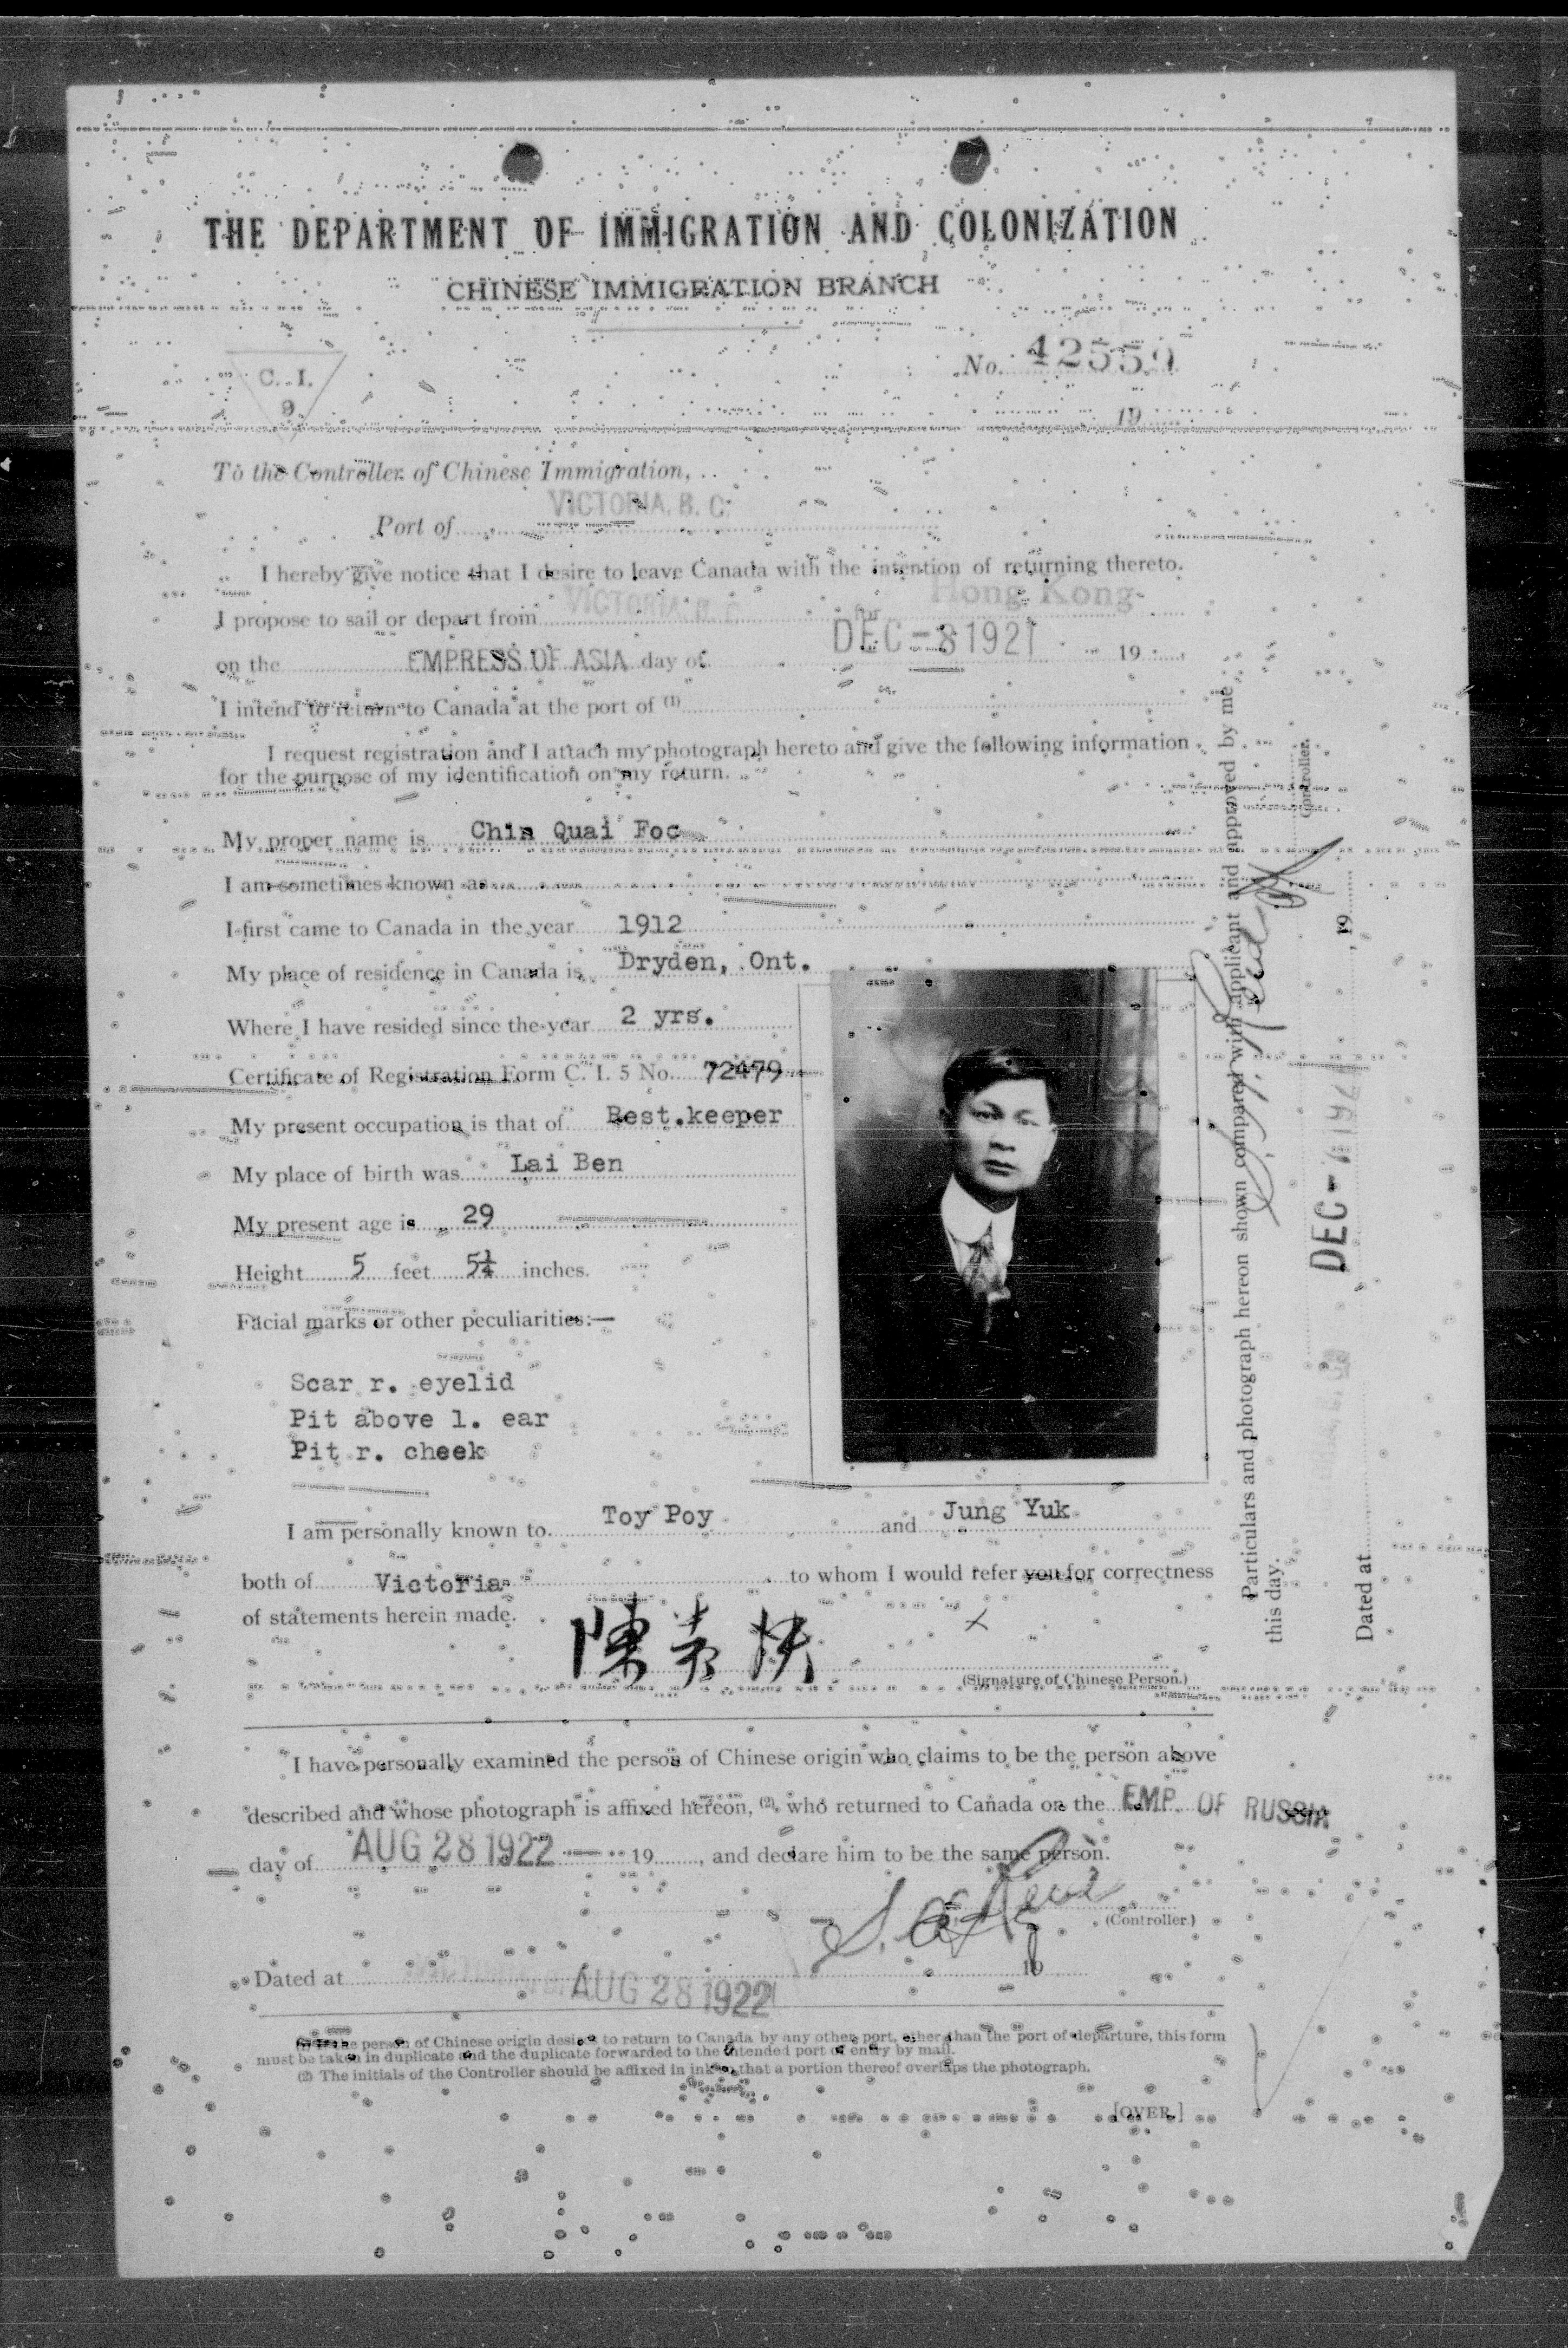 THE DEPARTMENT OF IMMIGRATION AND COLONIZATION
CHINESE IMMIGRATION BRANCH
C. I.
9
No. 42559
19
To the Controller of Chinese Immigration,
VICTORIA, B. C.
Port of
I hereby give notice that I desire to leave Canada with the intention of returning thereto.
I propose to sail or depart from VICTORIA, B. C. for Hong Kong
on the EMPRESS OF ASIA day of DEC - 8 1921 19
I intend to return to Canada at the port of (1)
I request registration and I attach my photograph hereto and give the following information
for the purpose of my identification on my return.
My proper name is Chin Quai Foo
I am sometimes known as
I first came to Canada in the year 1912
My place of residence in Canada is Dryden, Ont.
Where I have resided since the year 2 yrs.
Certificate of Registration Form C. I. 5 No. 72479
My present occupation is that of Rest.keeper
My place of birth was Lai Ben
My present age is 29
Height 5 feet 5¼ inches.
Facial marks or other peculiarities:—
Scar r. eyelid
Pit above l. ear
Pit r. cheek
I am personally known to Toy Poy and Jung Yuk
both of Victoria to whom I would refer you for correctness
of statements herein made.
陳
X
(Signature of Chinese Person.)
I have personally examined the person of Chinese origin who claims to be the person above
described and whose photograph is affixed hereon, (2), who returned to Canada on the EMP. OF RUSSIA
day of AUG 28 1922 19, and declare him to be the same person.
(Controller.)
Dated at AUG 28 1922 19
the person of Chinese origin desires to return to Canada by any other port, other than the port of departure, this form
must be taken in duplicate and the duplicate forwarded to the intended port of entry by mail.
(2) The initials of the Controller should be affixed in ink so that a portion thereof overlaps the photograph.
[OVER.]
Particulars and photograph hereon shown compared with applicant and approved by me
this day.
Controller.
Dated at DEC - 192 , 19